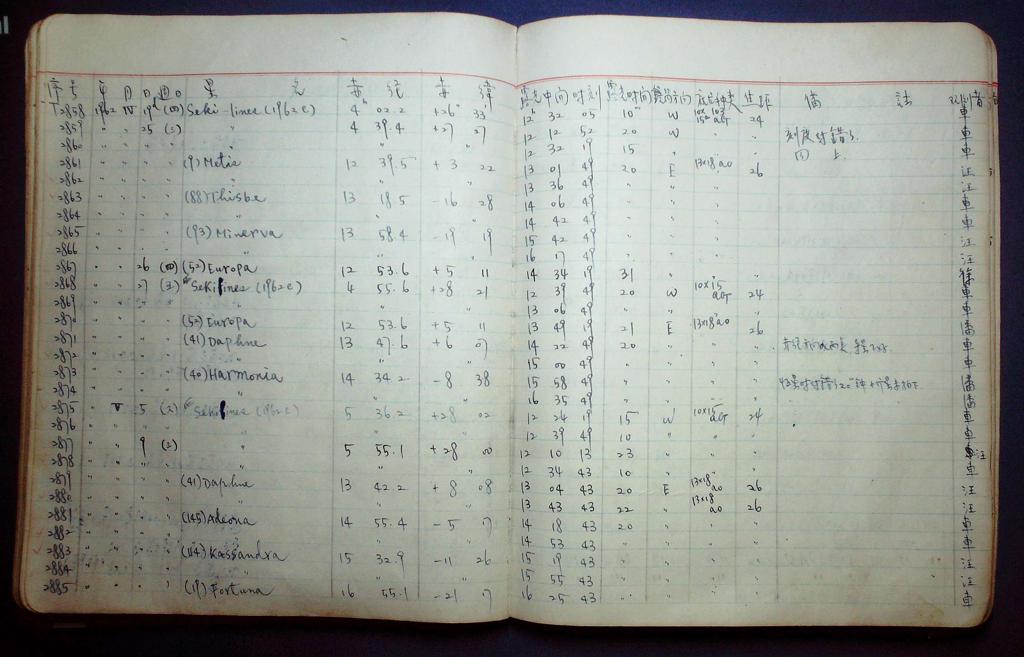 序号 年 月 日 週日 星 名 赤 经 赤 緯 露光中间时刻 露光时间 底片种类 焦距 備 註 观测者
2858 1962 IV 19 (四) Seki-Lines (1962c) 4 02.2 +26 33 12 32 05 10 W 24 車
2859 " " 25 (三) " 4 39.4 +27 27 12 12 52 20 W " " 刻度对錯了 車
2860 " " " " " 12 32 19 15 " " " 同 上 車
2861 " " " " (9) Metis 12 39.5 +3 22 13 01 49 20 E 13x18 ao 26 汪
2862 " " " " " " 13 36 49 " " " " 汪
2863 " " " " (88) Thisbe 13 18.5 -16 28 14 06 49 " " " " 車
2864 " " " " " " 14 42 49 " " " " 車
2865 " " " " (93) Minerva 13 58.4 -19 19 15 42 49 " " " " 汪
2866 " " " " " " 16 17 49 " " " " 汪
2867 " " 26 (四) (52) Europa 12 53.6 +5 11 14 34 19 31 " " " 徐
2868 " " 27 (五) Seki-Lines (1962c) 4 55.6 +28 21 12 39 49 20 W 10x15 aGT 24 車
2869 " " " " " " 13 06 49 " " " " 車
2870 " " " " (52) Europa 12 53.6 +5 11 13 49 19 21 E 13x18 ao 26 潘
2871 " " " " (41) Daphne 13 47.6 +6 07 14 22 49 20 " " " 車
2872 " " " " " " 15 00 49 " " " " 車
2873 " " " " (40) Harmonia 14 34.2 -8 38 15 58 49 " " " " 潘
2874 " " " " " " 16 35 49 " " " " 潘
2875 " V 5 Seki-Lines (1962c) 5 36.2 +28 02 12 24 19 15 W 10x15 aGT 24 車
2876 " " " " " " 12 39 49 10 " " " 車
2877 " " 9 (三) " 5 55.1 +28 00 12 10 13 23 " " " 汪
2878 " " " " " " 12 34 43 10 " " " 車
2879 " " " " (41) Daphne 13 42.2 +8 08 13 04 43 20 E 13x18 ao 26 汪
2880 " " " " " " 13 43 43 22 " 13x18 ao 26 汪
2881 " " " " (145) Adeona 14 55.4 -5 17 14 18 43 20 " " " 車
2882 " " " " " " 14 53 43 " " " " 車
2883 " " " " (114) Kassandra 15 32.9 -11 26 15 19 43 " " " " 汪
2884 " " " " " " 15 55 43 " " " " 汪
2885 " " " " (19) Fortuna 16 55.1 -21 17 16 25 43 " " " " 車